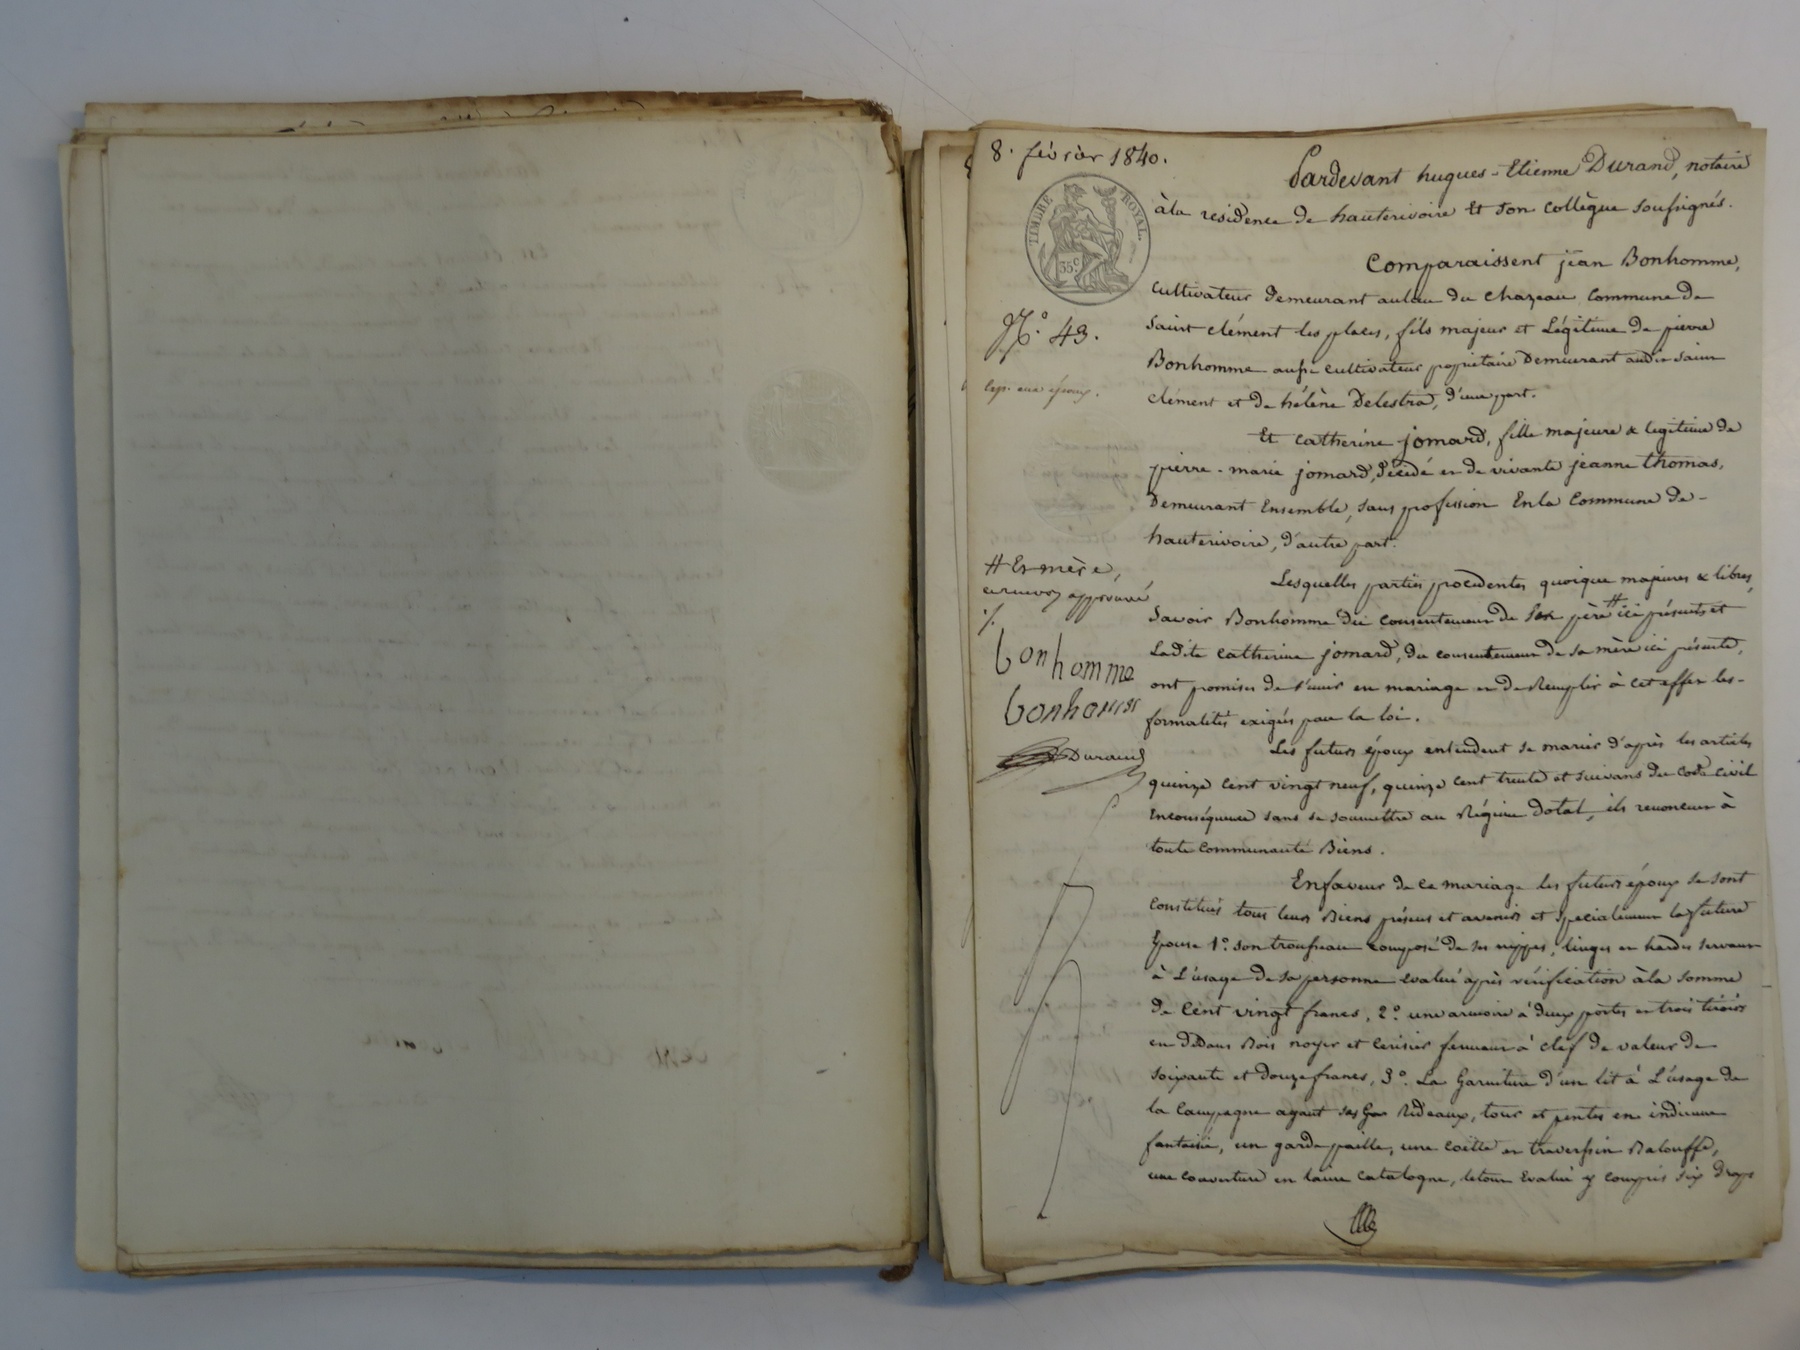 8. février 1840.
TIMBRE ROYAL.
35c
N.° 43.
Pardevant hugues-Etienne Durand, notaire
à la residence de hauterivoire et son collègue soussignés.
Comparaissent jean Bonhomme,
cultivateur demeurant au lau du chazeau commune de
saint clément les places, fils majeur et Légitime de pierre
Bonhomme aussi cultivateur propriétaire Demeurant audit saint
clément et de hélène Delestra, d'une part.
Et catherine jomard, fille majeure & legitime de
pierre-marie jomard, décédé et de vivante jeanne thomas,
Demeurant Ensemble, sans profession En la Commune de-
hauterivoire, d'autre part.
Lesquelles parties procedentes quoique majeures & libres,
savoir Bonhomme du consentement de ses père # ici présents et
Ladite catherine jomard, du consentement de sa mère ici présente,
ont promis de s'unir en mariage et de Remplir à cet effet les-
formalités exigées par la loi.
Les futurs époux entendent se marier d'après les articles
quinze cent vingt neuf, quinze cent trente et suivans du code civil
En conséquence sans se soumettre au Régime dotal, ils renoncent à
toute communauté Biens.
En faveur de ce mariage les futurs époux se sont
Constitués tous leurs Biens présens et avenirs et specialement la future
Epouse 1°. son trousseau composé de ses nippes, linges et hardes servant
à L'usage de sa personne evalué après vérification à la somme
de Cent vingt francs, 2°. une armoire à deux portes et trois tiroirs
en dedans Bois noyer et cerisier fermant à clef de valeur de
soixante et douze francs, 3°. La Garniture d'un lit à L'usage de
la Campagne ayant ses Rideaux, tour et pentes en indienne
fantaisie, un garde paille, une coëtte et traversin Balouffe,
une couverture en laine catalogne, le tout Evalué y compris six draps
exp. aux époux.
# Et mère,
ce renvoy approuvé
./.
bonhomme
bonhomme
Durand